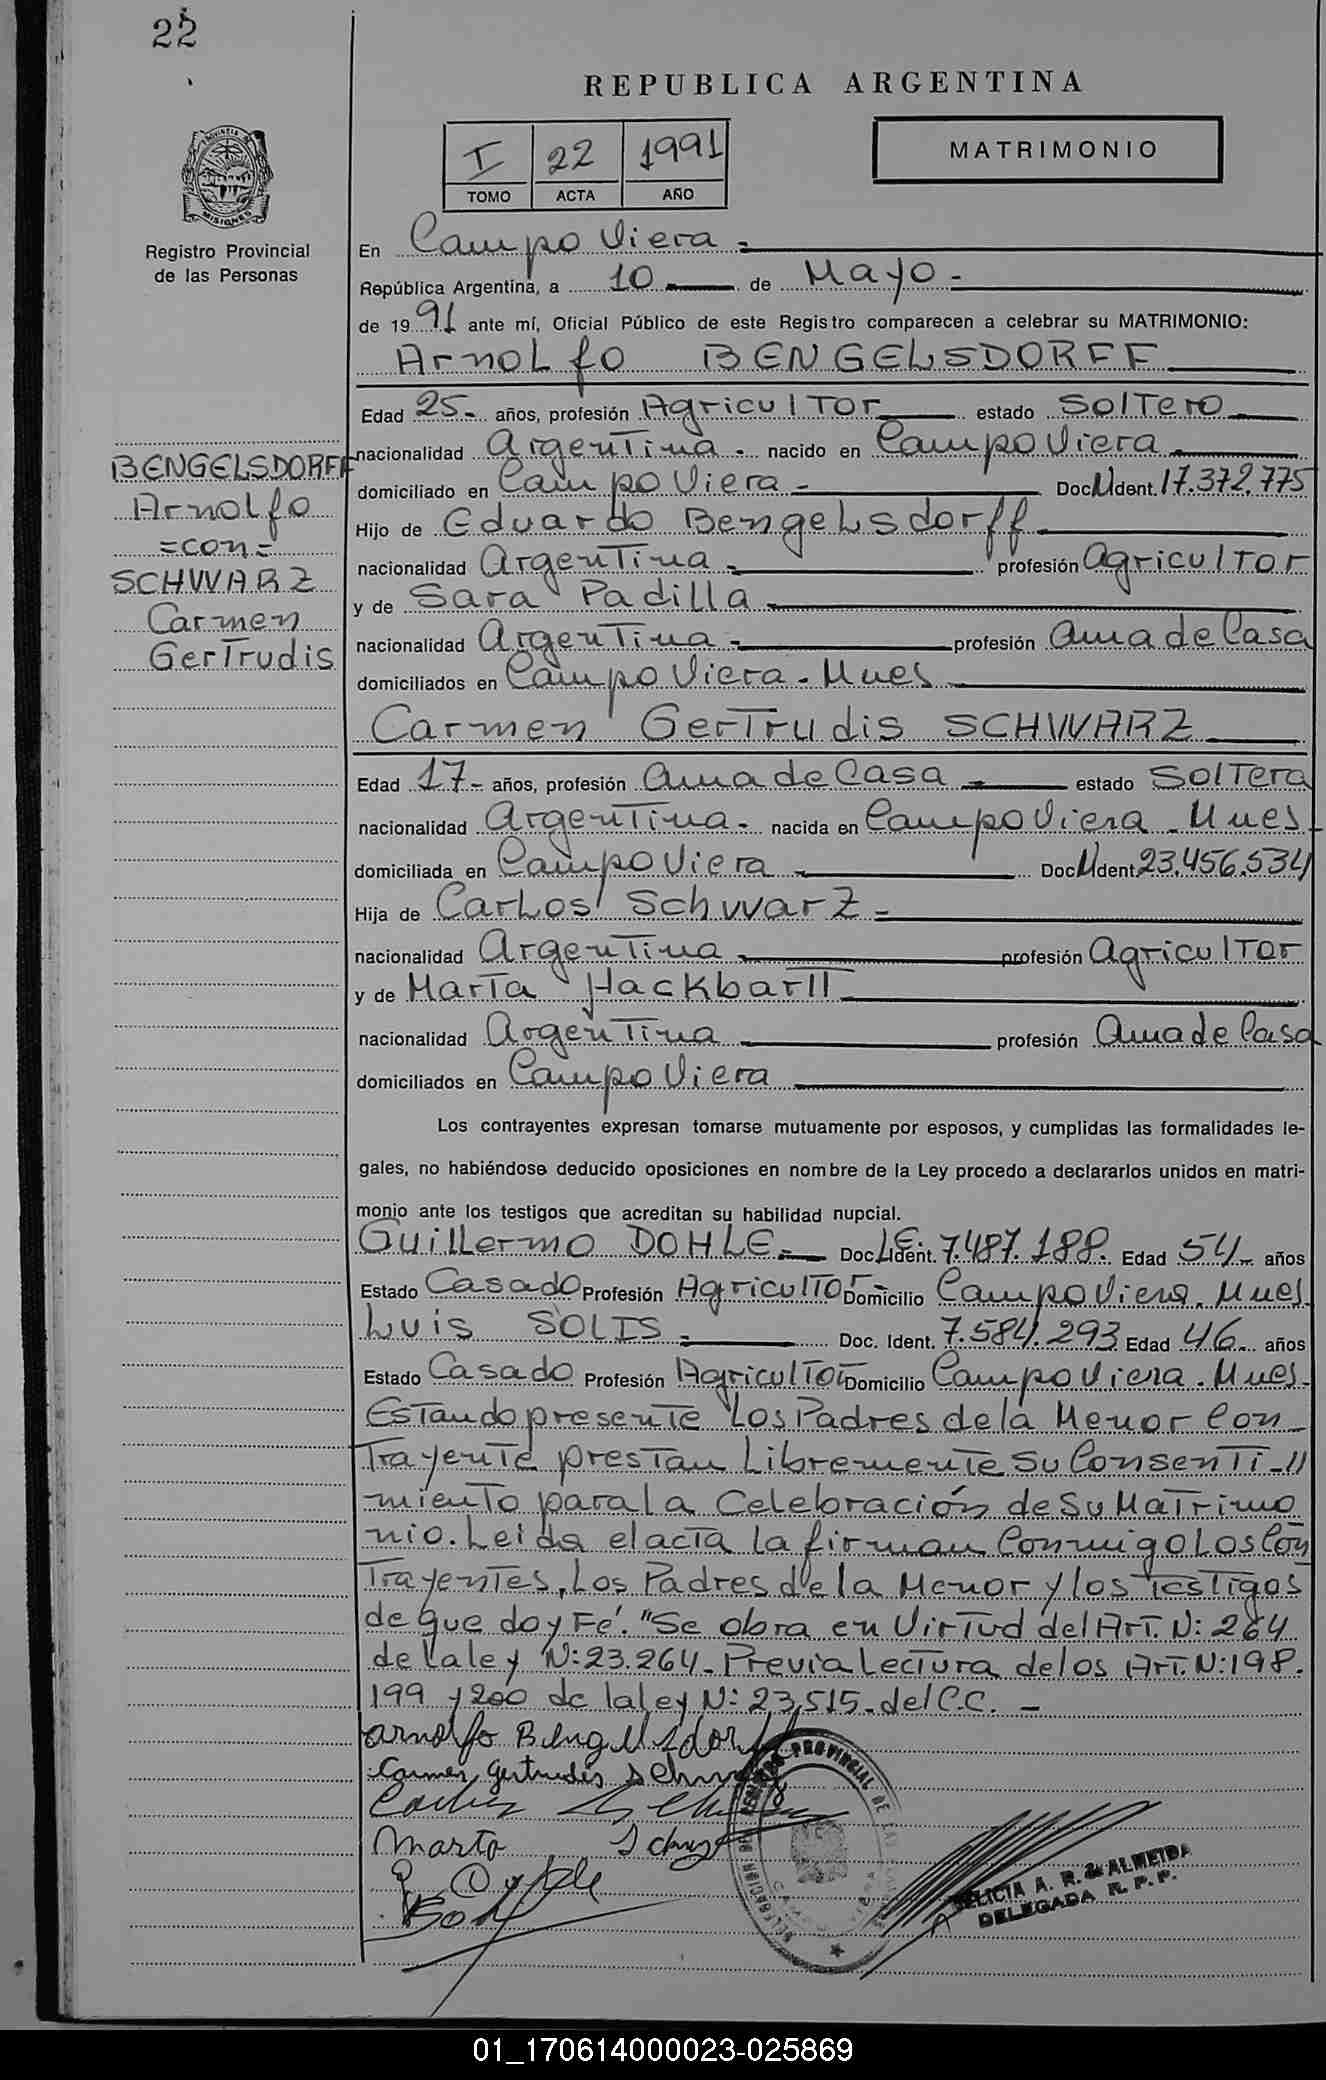 22
REPUBLICA ARGENTINA
I 22 1991
TOMO ACTA AÑO
MATRIMONIO
PROVINCIA DE MISIONES
Registro Provincial
de las Personas
En Campo Viera =
República Argentina, a 10 de Mayo -
de 1991 ante mí, Oficial Público de este Registro comparecen a celebrar su MATRIMONIO:
Arnolfo BENGELSDORFF
Edad 25- años, profesión Agricultor estado Soltero
nacionalidad Argentina - nacido en Campo Viera
domiciliado en Campo Viera - Doc. Ident. 17.372.775
Hijo de Eduardo Bengelsdorff
nacionalidad Argentina - profesión Agricultor
y de Sara Padilla
nacionalidad Argentina - profesión Ama de Casa
domiciliados en Campo Viera - Mnes
Carmen Gertrudis SCHWARZ
Edad 17- años, profesión Ama de Casa estado Soltera
nacionalidad Argentina - nacida en Campo Viera - Mnes
domiciliada en Campo Viera Doc. Ident. 23.456.534
Hija de Carlos Schwarz =
nacionalidad Argentina profesión Agricultor
y de Marta Hackbartt
nacionalidad Argentina profesión Ama de Casa
domiciliados en Campo Viera
BENGELSDORFF
Arnolfo
=con=
SCHWARZ
Carmen
Gertrudis
Los contrayentes expresan tomarse mutuamente por esposos, y cumplidas las formalidades le-
gales, no habiéndose deducido oposiciones en nombre de la Ley procedo a declararlos unidos en matri-
monio ante los testigos que acreditan su habilidad nupcial.
Guillermo DOHLE - Doc. L.E. Ident. 7.487.188. Edad 54- años
Estado Casado Profesión Agricultor Domicilio Campo Viera. Mnes
Luis SOLIS - Doc. Ident. 7.584.293 Edad 46- años
Estado Casado Profesión Agricultor Domicilio Campo Viera. Mnes-
Estando presente Los Padres de la Menor Con_
Trayente prestan Libremente Su Consenti_//
miento para la Celebración de Su Matrimo
nio. Leida el acta la firman Conmigo Los Con
Trayentes, Los Padres de la Menor y los testigos
de que doy Fé. "Se obra en Virtud del Art. N: 264
de la ley N: 23.264_ Previa Lectura de los Art. N: 198.
199 y 200 de la ley N: 23.515- del C.C. -
Arnolfo Bengelsdorff
Carmen Gertrudis Schwarz
Marta Schwarz
REGISTRO PROVINCIAL DE LAS
DELICIA A. R. de ALMEIDA
DELEGADA R. P. P.
01_170614000023-025869